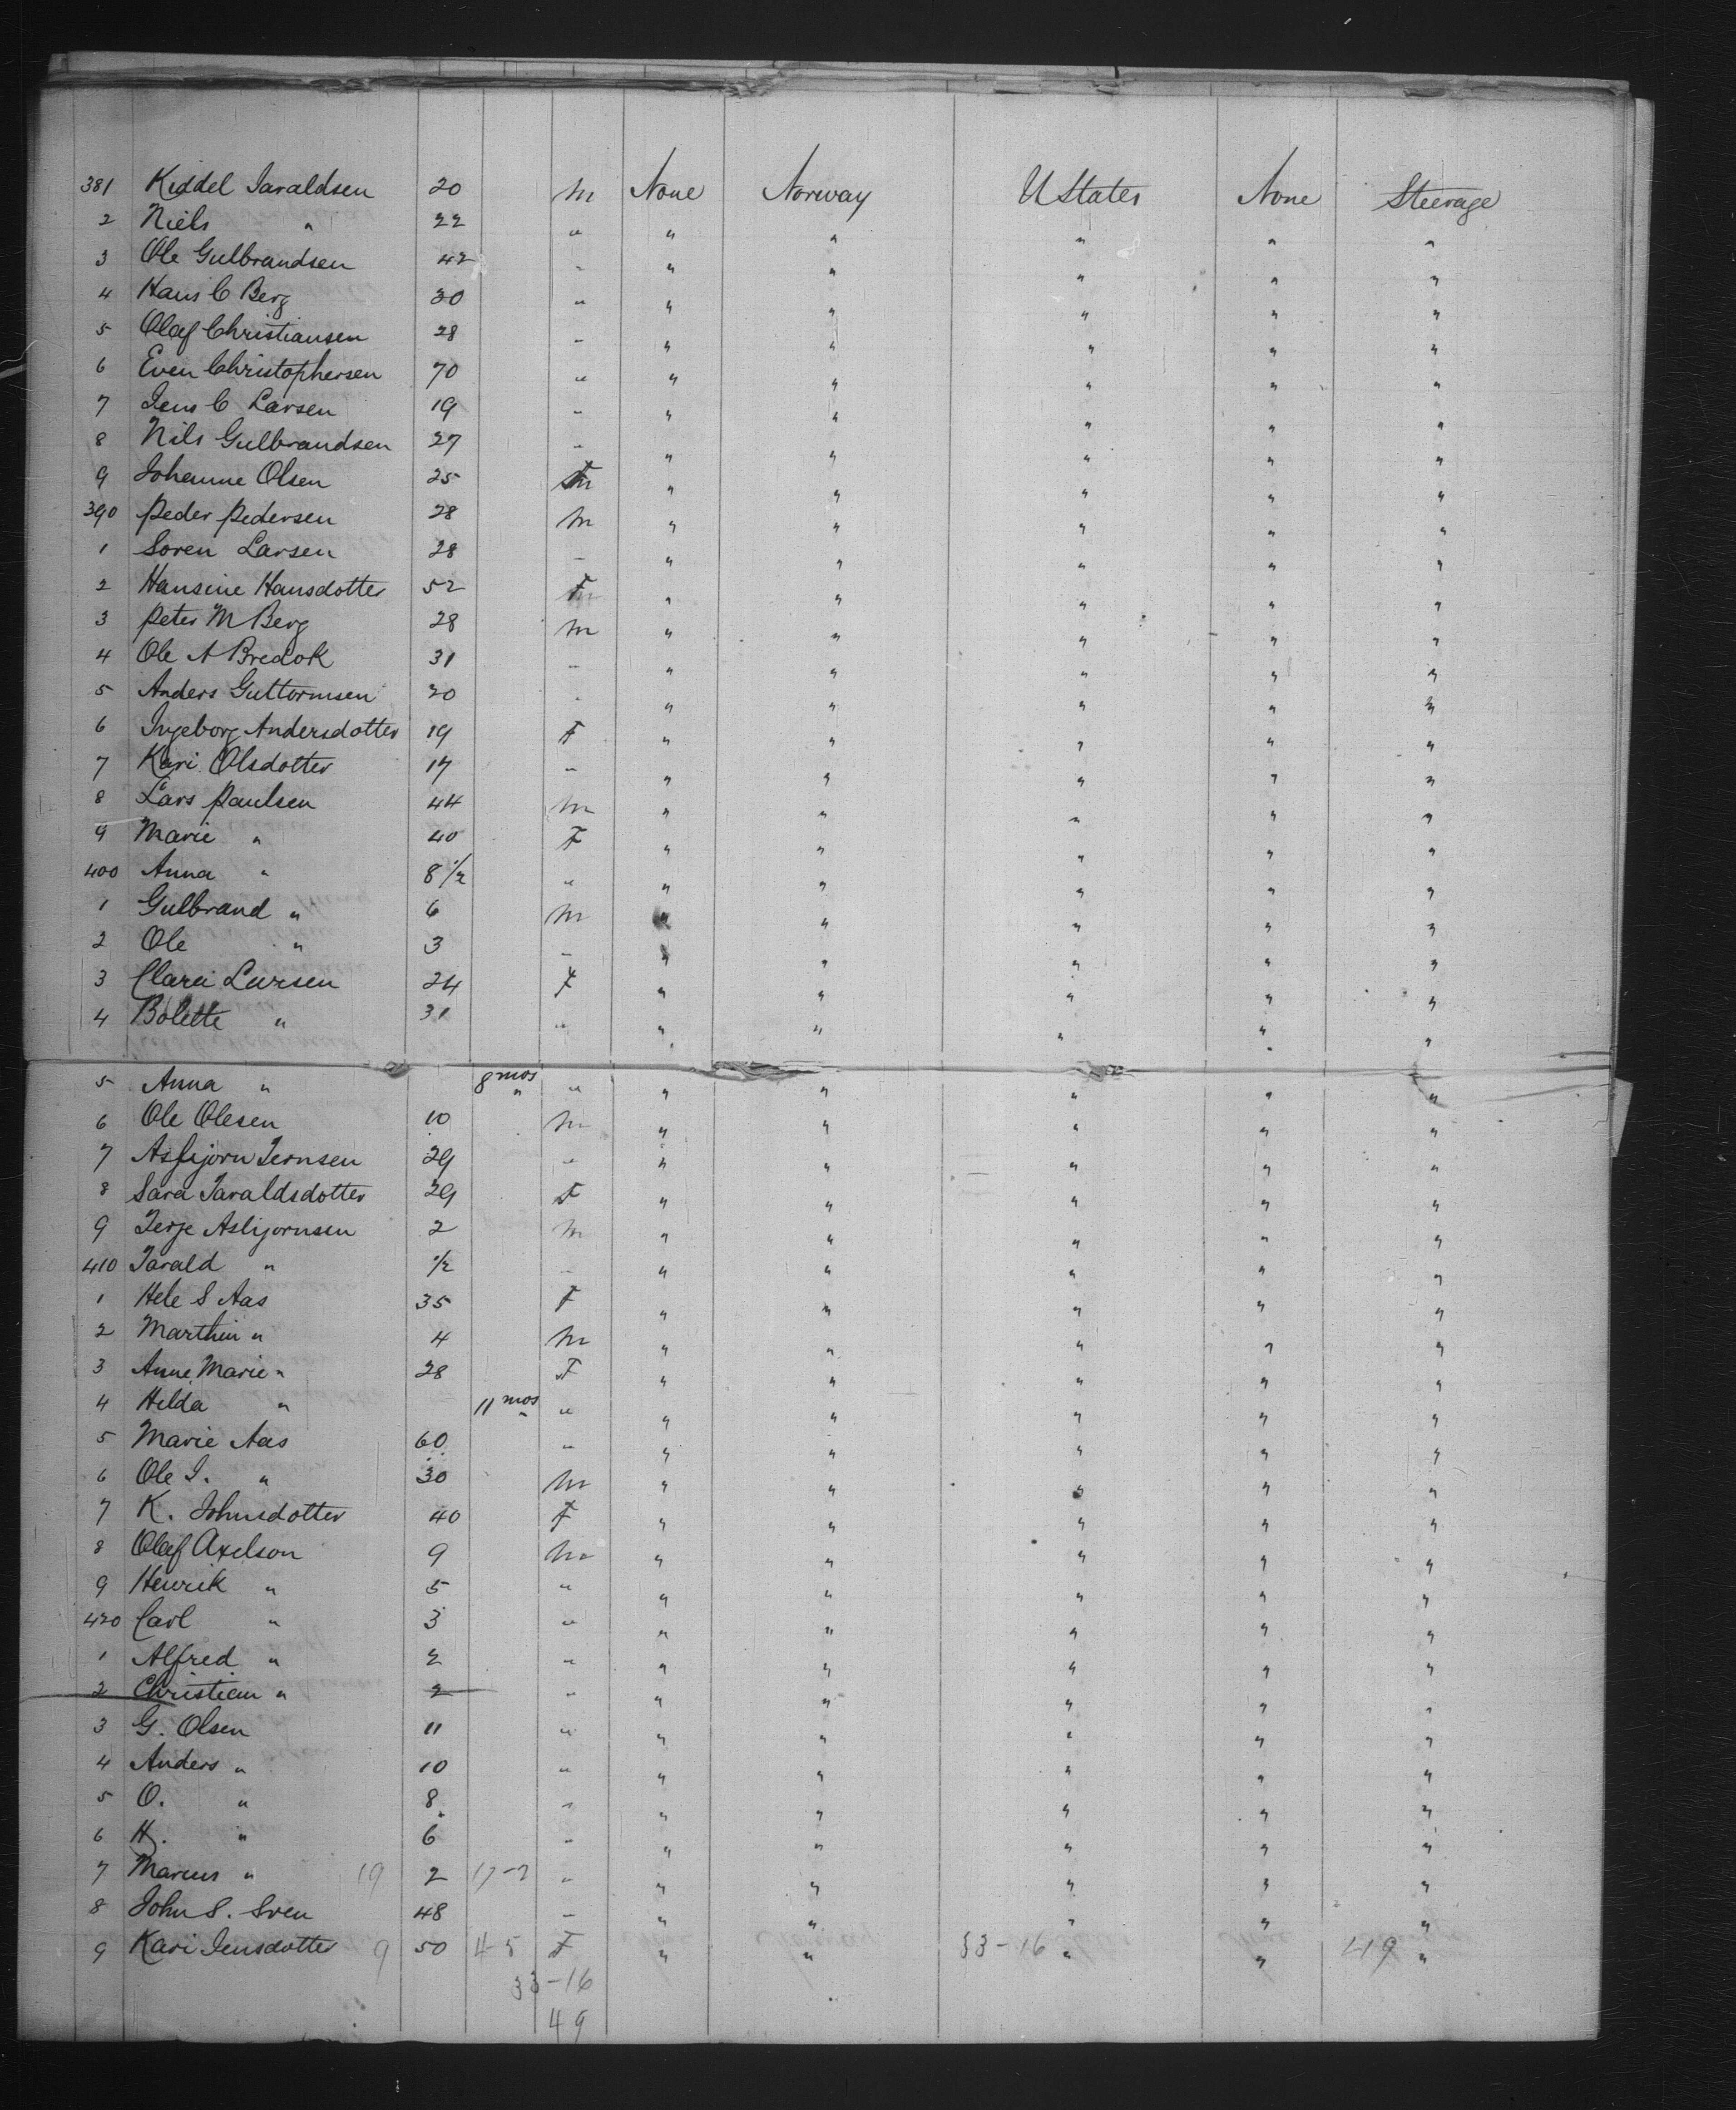 381 Kiddel Taraldsen 20 m None Norway U States None Steerage
2 Niels " 22 " " " " " "
3 Ole Gulbrandsen 42 " " " " " "
4 Hans C Berg 30 " " " " " "
5 Olaf Christiansen 28 " " " " " "
6 Even Christophersen 70 " " " " " "
7 Jens C Larsen 19 " " " " " "
8 Nils Gulbrandsen 27 " " " " " "
9 Johanne Olsen 25 F " " " " "
390 Peder Pedersen 28 m " " " " "
1 Soren Larsen 28 " " " " " "
2 Hansine Hansdotter 52 F " " " " "
3 Peter M Berg 28 m " " " " "
4 Ole A Bredok 31 " " " " " "
5 Anders Guttormsen 20 " " " " " "
6 Ingeborg Andersdotter 19 F " " " " "
7 Kari Olsdotter 17 " " " " " "
8 Lars Paulsen 44 m " " " " "
9 Marie " 40 F " " " " "
400 Anna " 8 1/2 " " " " " "
1 Gulbrand " 6 m " " " " "
2 Ole " 3 " " " " " "
3 Clara Larsen 24 F " " " " "
4 Bolette " 31 " " " " " "
5 Anna " 8 mos " " " " " "
6 Ole Olesen 10 m " " " " "
7 Asbjorn Jernsen 29 " " " " " "
8 Sara Taraldsdotter 29 F " " " " "
9 Terje Asbjornsen 2 m " " " " "
410 Tarald " 1/2 " " " " " "
1 Hele S Aas 35 F " " " " "
2 Marthin " 4 m " " " " "
3 Anne Marie " 28 F " " " " "
4 Hilda " 11 mos " " " " " "
5 Marie Aas 60 " " " " " "
6 Ole I. " 30 m " " " " "
7 K. Johnsdotter 40 F " " " " "
8 Olaf Axelson 9 m " " " " "
9 Henrik " 5 " " " " " "
420 Carl " 3 " " " " " "
1 Alfred " 2 " " " " " "
2 Christian " 2 " " " " " "
3 G. Olsen 11 " " " " " "
4 Anders " 10 " " " " " "
5 O. " 8 " " " " " "
6 H. " 6 " " " " " "
7 Marius " 19 2 17-2 " " " " " "
8 John S. Sven 48 " " " " " "
9 Kari Jensdotter 9 50 4-5 F " " 33-16 " " 49 "
33-16
49